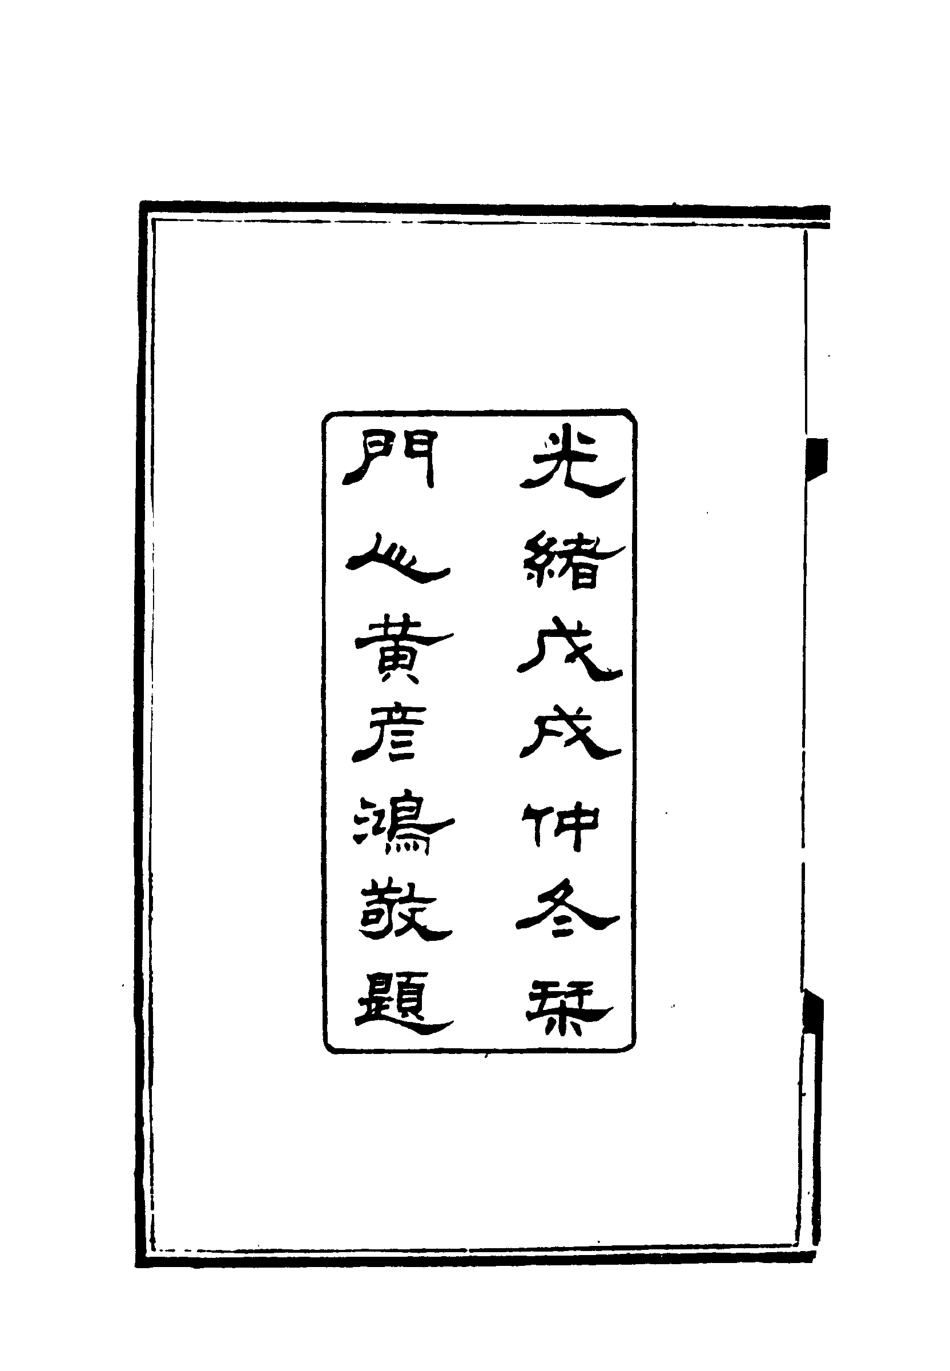 光緒戊戌仲冬栞
門人黃彥鴻敬題